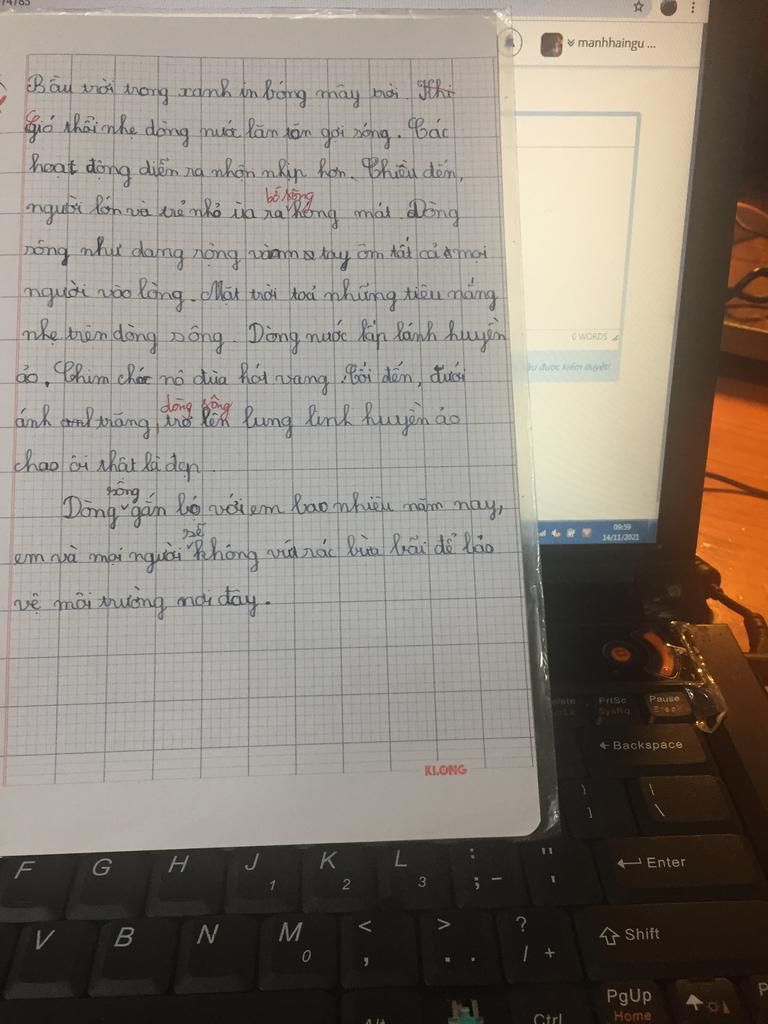 manhhaingu ...
Bầu trời trong xanh in bóng mây trời. Khi
gió thổi nhẹ dòng nước lăn tăn gợi sóng. Các
hoạt động diễn ra nhộn nhịp hơn. Chiều đến,
bờ sông
người lớn và trẻ nhỏ ùa ra hóng mát. Dòng
sông như dang rộng vòng tay ôm tất cả mọi
người vào lòng. Mặt trời toả những tiêu nắng
nhẹ trên dòng sông. Dòng nước lấp lánh huyền
0 WORDS
ảo. Chim chóc nô đùa hót vang. Tối đến, dưới
được kiểm duyệt!
dòng sông
ánh trăng, trở lên lung linh huyền ảo
chao ôi thật là đẹp
sông
Dòng gắn bó với em bao nhiêu năm nay,
sẽ
em và mọi người không vứt rác bừa bãi để bảo
09:59
14/11/2021
vệ môi trường nơi đây.
PrtSc
SysRq
Pause
Break
← Backspace
KLONG
) ]
| \
F G H J 1 K 2 L 3 : ; - " ' ← Enter
V B N M 0 < , > . . ? / + Shift
Alt Ctrl PgUp Home